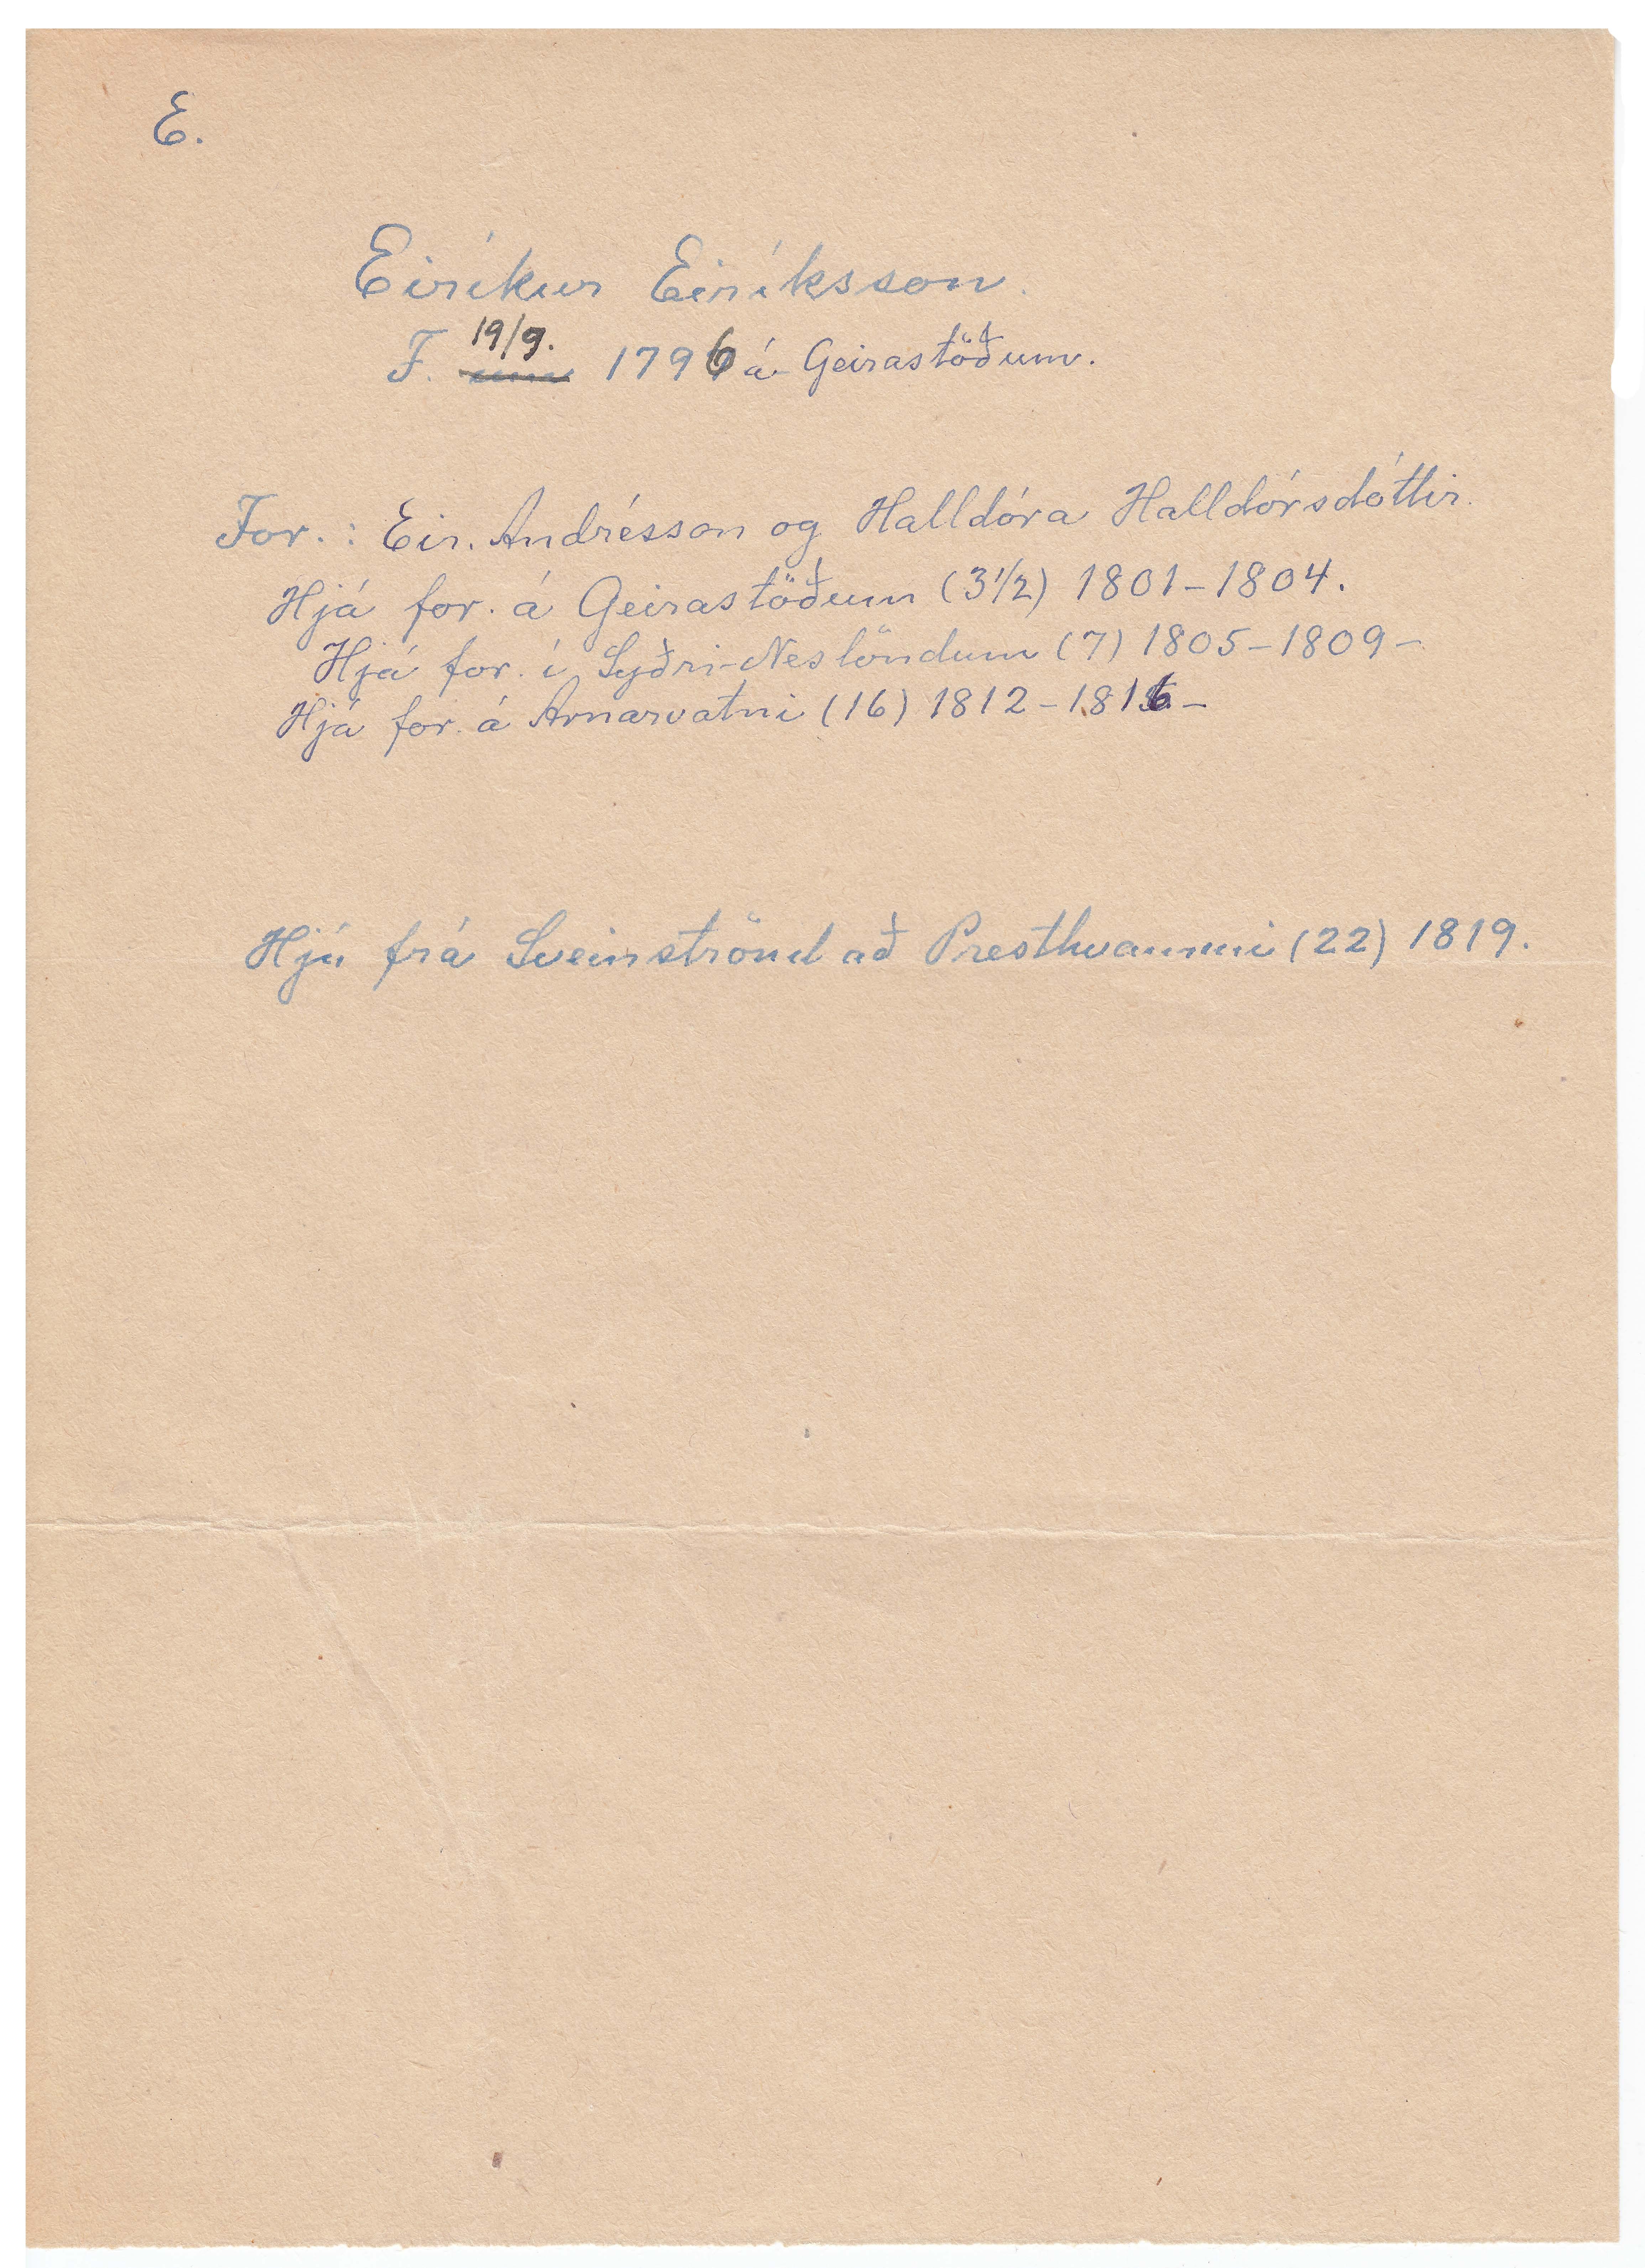 E.
Eiríkur Eiríksson.
19/9.
F. um 1796 á Geirastöðum.
For.: Eir. Andrésson og Halldóra Halldórsdóttir.
Hjá for. á Geirastöðum (3 1/2) 1801-1804.
Hjá for. í Syðri-Neslöndum (7) 1805-1809-
Hjá for. á Arnarvatni (16) 1812-1816-
Hjú frá Sveinströnd að Presthvammi (22) 1819.